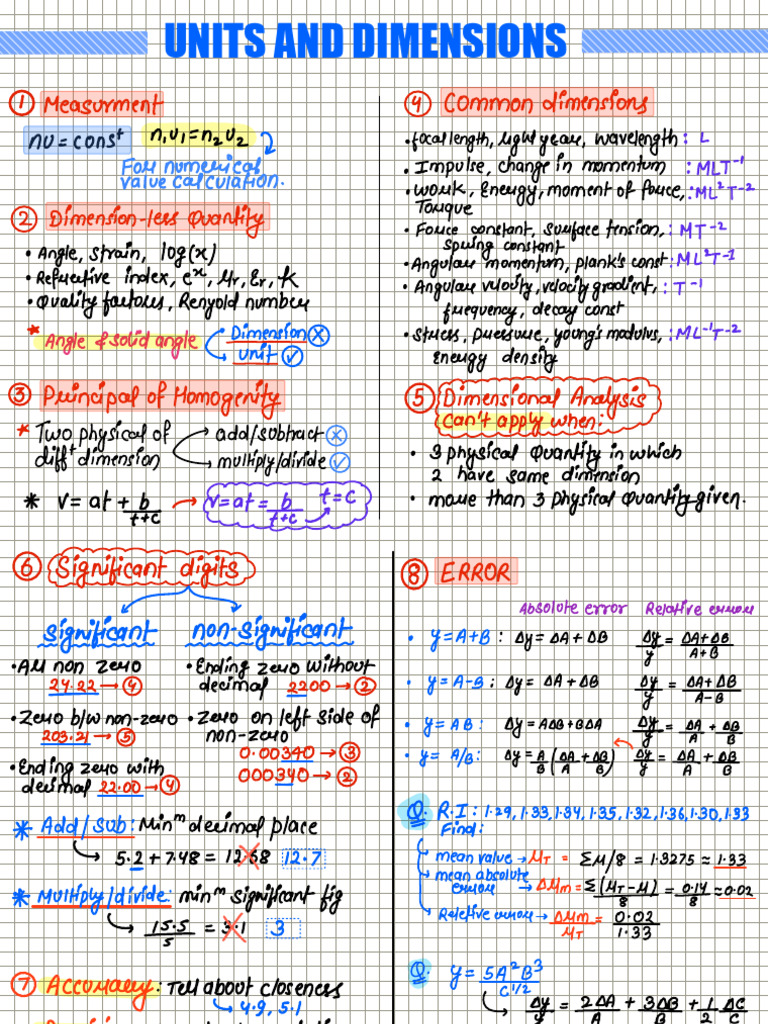 UNITS AND DIMENSIONS
① Measurment
nu = constᵗ n₁u₁ = n₂u₂
For numerical
value calculation.
② Dimension-less Quantity
• Angle, strain, log(x)
• Refrective index, eˣ, μr, εr, K
• Quality factors, Renyold number
* Angle & solid angle
Dimension ⓧ
unit ✓
③ Principal of Homogenity
* Two physical of
diffᵗ dimension
add/subtract ⓧ
multiply/divide ✓
* v = at + b/(t+c) → v = at = b/(t+c) t = c
④ Common dimensions
• focal length, light year, wavelength : L
• Impulse, change in momentum : MLT⁻¹
• work, Energy, moment of force, : ML²T⁻²
Torque
• Force constant, surface tension, : MT⁻²
spring constant
• Angular momentum, plank's const : ML²T⁻¹
• Angular velocity, velocity gradient, : T⁻¹
frequency, decay const
• stress, pressure, young's modulus, : ML⁻¹T⁻²
Energy density
⑤ Dimensional Analysis
can't apply when:
• 3 physical Quantity in which
2 have same dimension
• more than 3 physical Quantity given.
⑥ Significant digits
significant non-significant
• All non zero
24.22 → ④
• Zero b/w non-zero
203.21 → ⑤
• Ending zero with
decimal 22.00 → ④
• Ending zero without
decimal 2200 → ②
• Zero on left side of
non-zero
0.00340 → ③
000340 → ②
* Add/sub: Minᵐ decimal place
5.2 + 7.48 = 12.68 12.7
* Multiply/divide: minᵐ significant fig
15.5/5 = 3.1 3
⑦ Accuracy: Tell about closeness
→ 4.9, 5.1
⑧ ERROR
Absolute error Relative error
• y = A+B : Δy = ΔA + ΔB Δy/y = (ΔA+ΔB)/(A+B)
• y = A-B : Δy = ΔA + ΔB Δy/y = (ΔA+ΔB)/(A-B)
• y = AB : Δy = AΔB+BΔA Δy/y = ΔA/A + ΔB/B
• y = A/B : Δy = A/B (ΔA/A + ΔB/B) Δy/y = ΔA/A + ΔB/B
Q. R.I : 1.29, 1.33, 1.34, 1.35, 1.32, 1.36, 1.30, 1.33
Find:
mean value → μT = Σμ/8 = 1.3275 ≈ 1.33
mean absolute
error → Δμm = Σ(μT-μ)/8 = 0.14/8 = 0.02
Reletive error → Δμm/μT = 0.02/1.33
Q. y = 5A²B³/C^1/2
Δy/y = 2ΔA/A + 3ΔB/B + 1/2 ΔC/C